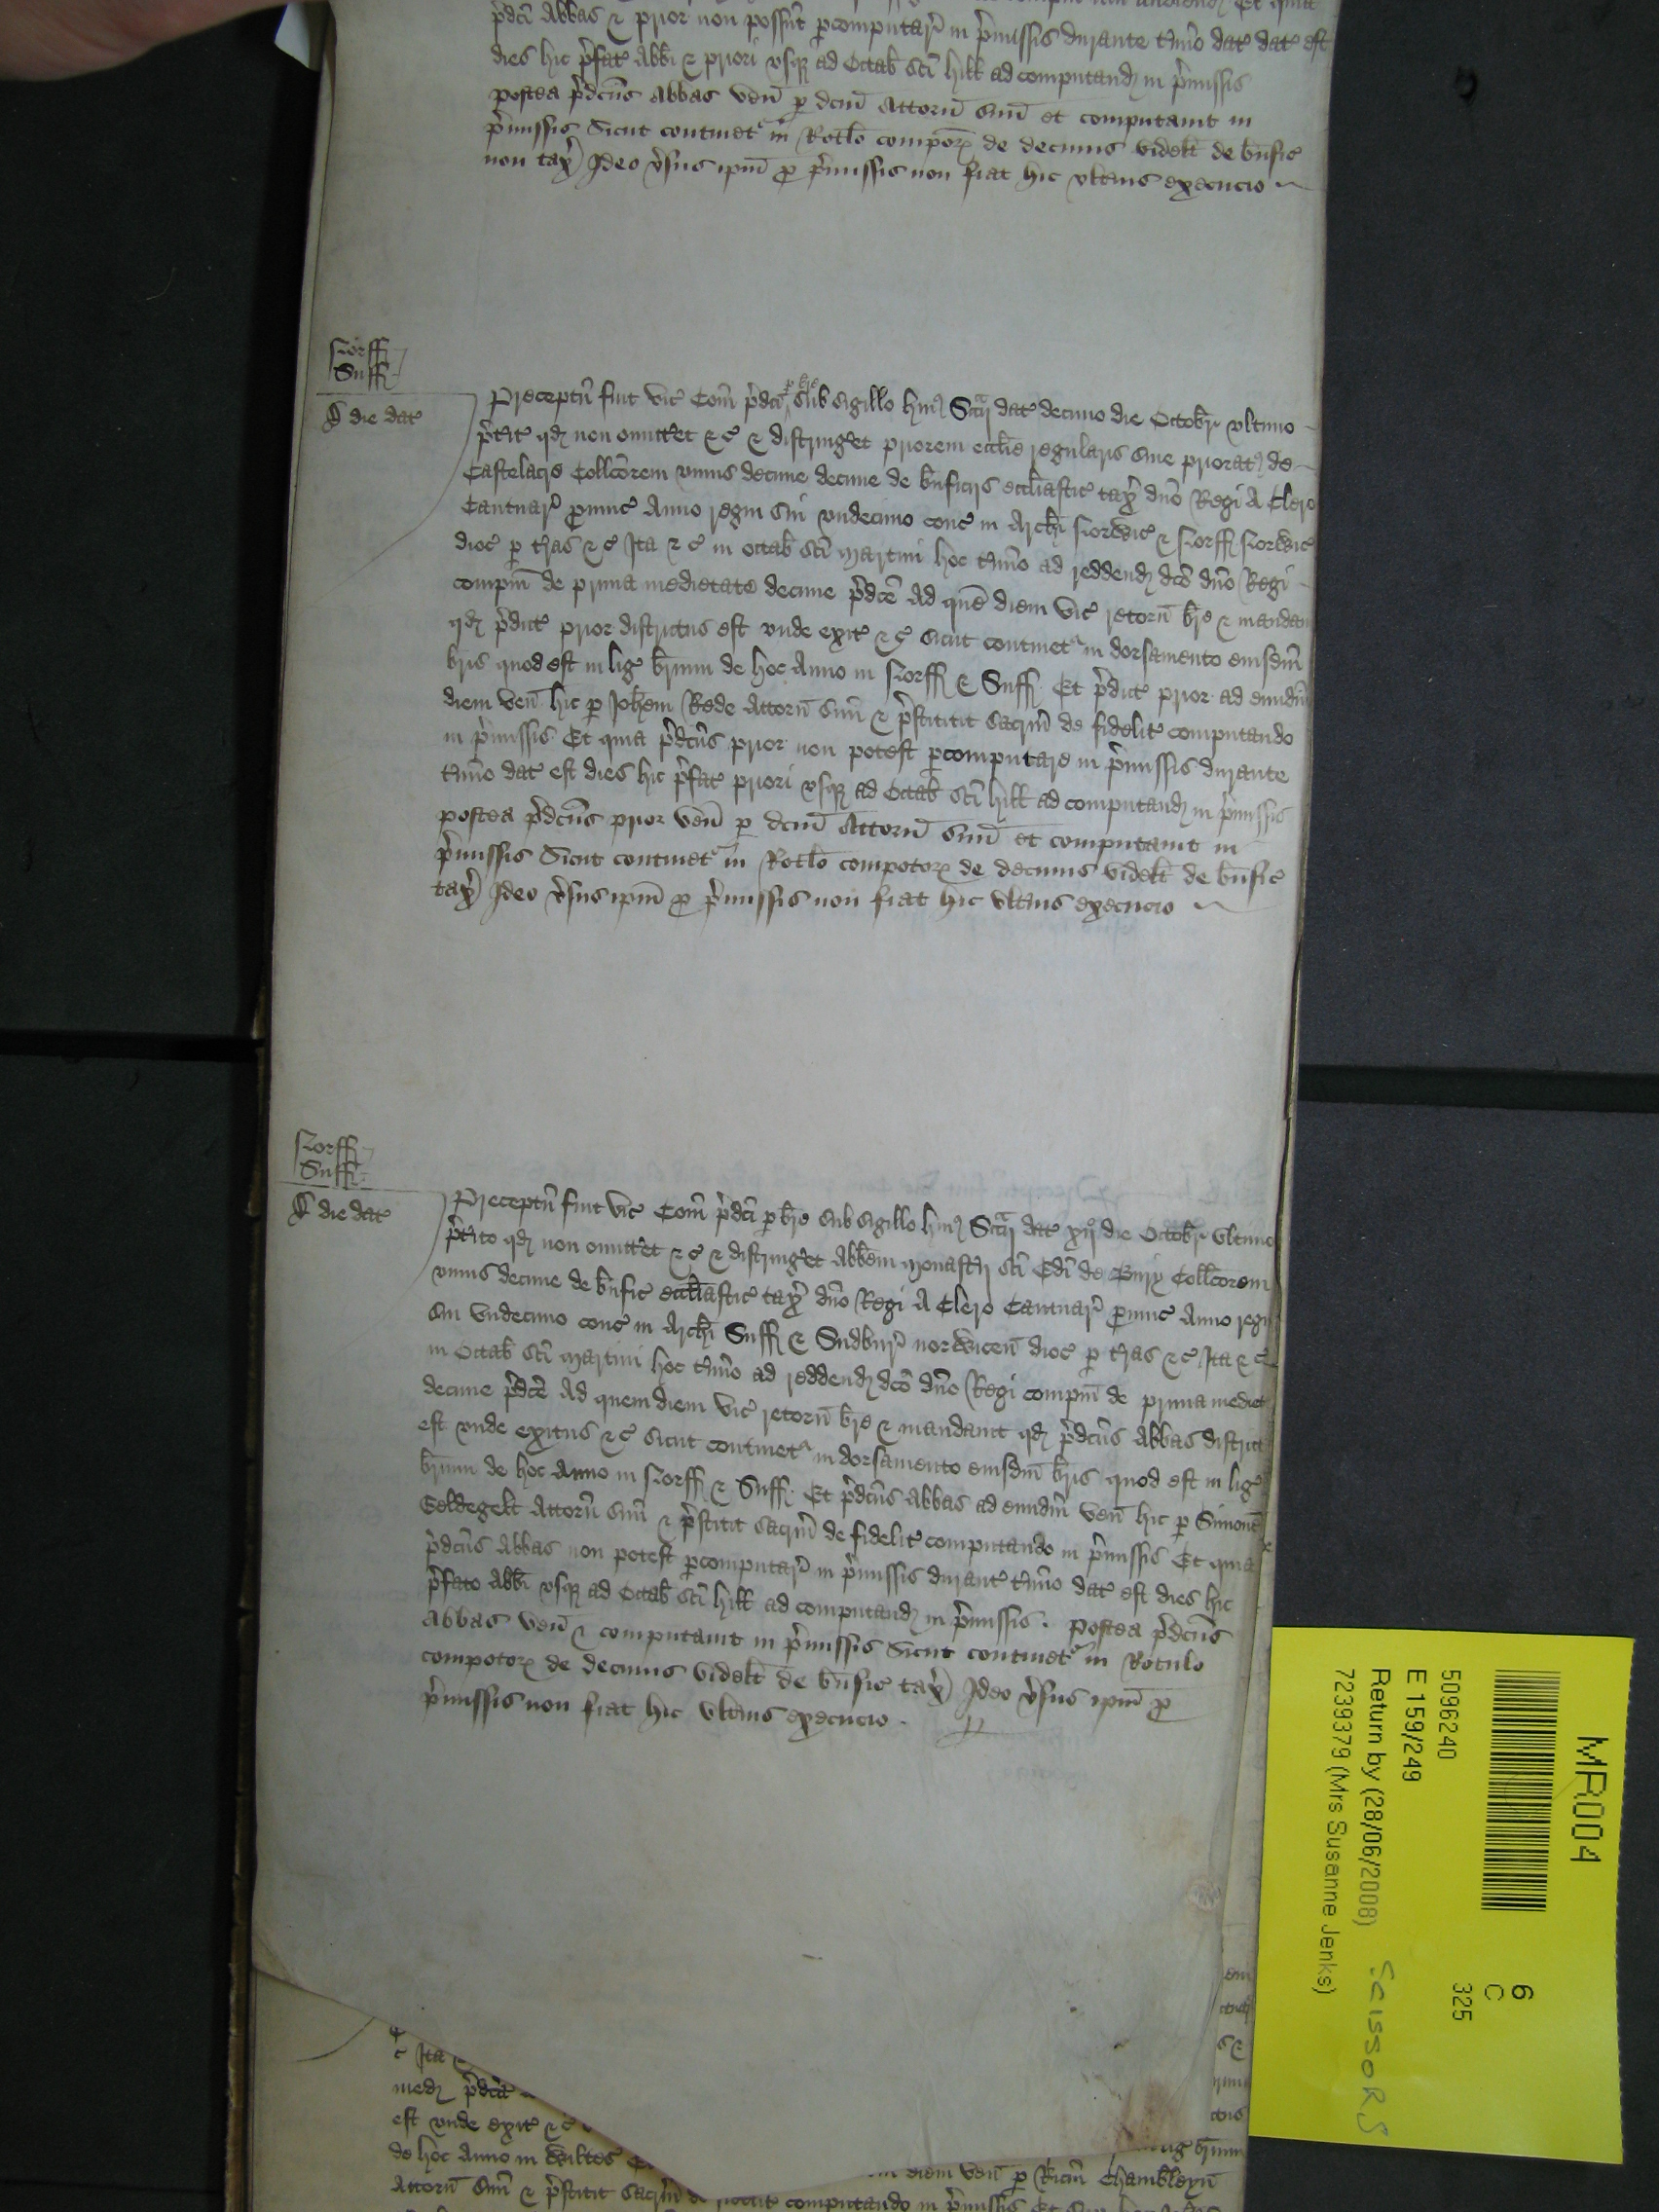 p̄dcī Abbas & prior non possūt p̄computar̄ in p̄missis durante t̄mīo dat̄ dat̄ est
dies hic p̄fat̄ Abb̄i & priori vsq̨ ad Octab̄ sc̄i Hill̄ ad computand̨ in p̄missis
postea p̄dcūs Abbas ven̄ p̱ dcm̄ Attorn̄ suū et computauit in
p̄missis Sicut continet᷑ in Rotl̄o compoꝝ de decimis videlt̄ de b̄nfic̄
non tax̄) Ideo v̄sus ip̄m p̱ p̄missis non fiat hic vlt̄ius execucio
Norff̄
Suff̄
℞ die dat̄
Preceptū fuit vic̄ Com̄ p̄dcī p̱ br̄e sub sigillo hui᷒ Sccīj dat̄ decimo die Octobr̄ vltimo
p̄t̄it̄ qd̨ non omitt̄et &c̄ & distrinḡet priorem eccl̄ie regularis siue priorat᷒ de
Castelacr̄ Collc̄orem vnius decime decime de b̄nficijs eccl̄iastic̄ tax̄ dn̄o Regi A Clero
Cantuar̄ p̱uinc̄ Anno regni sui vndecimo conc̄ in Archī Norwic̄ & Norff̄ Norwic̄
dioc̄ p̱ tr̄as &c̄ Ita &c̄ in octab̄ sc̄i Martini hoc t̄mīo ad reddend̨ dcō dn̄o Regi
comp̄m de prima medietate decime p̄dcē Ad quē diem vic̄ retorn̄ br̄e & mandau
qd̨ p̄dict̄ prior districtus est vnde exit̄ &c̄ sicut continet᷑ in dorsamento eiusdm̄
br̄is quod est in liḡ br̄ium de hoc Anno in Norff̄ & Suff̄ Et p̄dict̄ prior ad eundm̄
diem ven̄ hic p̱ Joh̄em Rede Attorn̄ suū & p̄stititit sacrm̄ de fidelit̄ computando
in p̄missis Et quia p̄dcūs prior non potest p̱computare in p̄missis durante
t̄mīo dat̄ est dies hic p̄fat̄ priori vsq̨ ad Octab̄ sc̄i Hill̄ ad computand̨ in p̄missis
postea p̄dcūs prior ven̄ p̱ dcm̄ Attorn̄ suū et computauit in
p̄missis Sicut continet᷑ in Rotl̄o compotoꝝ de decimis videlt̄ de b̄nfic̄
tax̄) Ideo v̄sus ip̄m p̱ p̄missis non fiat hic vlt̄ius execucio
Norff̄
Suff̄
℞ die dat̄
Preceptū fuit vic̄ Com̄ p̄dcī p̱ br̄e sub sigillo hui᷒ Sccīj dat̄ xijº die Octobr̄ vltimo
p̄t̄ito qd̨ non omitt̄et &c̄ & distrinḡet Abb̄em Monast̄ij sc̄i Edī de Bury Collc̄orem
vnius decime de b̄nfic̄ eccl̄iastic̄ tax̄ dn̄o Regi A Clero Cantuar̄ p̱uinc̄ Anno regni
sui vndecimo conc̄ in Archī Suff̄ & Sudbur̄ norwicen̄ dioc̄ p̱ tr̄as &c̄ Ita &c̄
in Octab̄ sc̄i Martini hoc t̄mīo ad reddend̨ dcō dn̄o Regi comp̄m de prima mediet̄
decime p̄dcē Ad quem diem vic̄ retorn̄ br̄e & mandauit qd̨ p̄dcūs Abbas district
est vnde exitus &c̄ sicut continet᷑ in dorsamento eiusdm̄ br̄is quod est in liḡ
br̄ium de hoc Anno in Norff̄ & Suff̄ Et p̄dcūs Abbas ad eundm̄ ven̄ hic p̱ Simonē
Eeldegelt̄ Attorn̄ suū & p̄stitit sacrm̄ de fidelit̄ computando in p̄missis Et quia
p̄dcūs Abbas non potest p̱computar̄ in p̄missis durant̄ t̄mīo dat̄ est dies hic
p̄fato Abb̄i vsq̨ ad Octab̄ sc̄i Hill̄ ad computand̨ in p̄missis . Postea p̄dcūs
Abbas ven̄ & computauit in p̄missis Sicut continet᷑ in Rotulo
compotoꝝ de decimis videlt̄ de b̄nfic̄ tax̄) Ideo v̄sus ip̄m p̱
p̄missis non fiat hic vlt̄ius execucio .
c̄ Ita &
med̨ p̄dcē
est vnde exit̄ &c̄
de hoc Anno in Wiltes̄
liḡ br̄ium
diem ven̄ p̱ Ricm̄ Chamb̄leyn̄
Attorn̄ suū & p̄stitit sacrm̄ de fidelit̄ computando in p̄missis Et
MR004
6
C
325
5096240
E 159/249
Return by (28/06/2008)
7239379 (Mrs Susanne Jenks)
SCISSORS